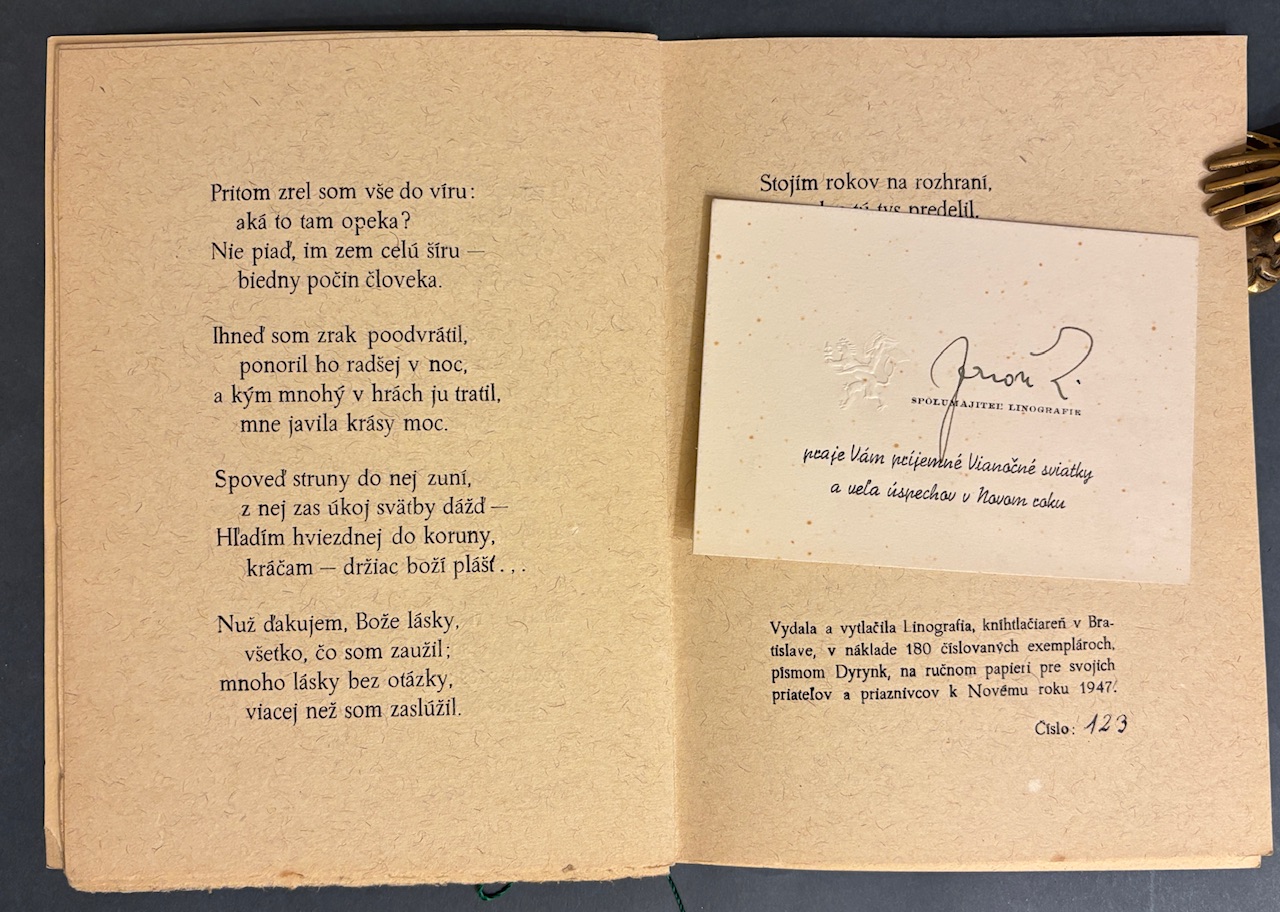 Pritom zrel som vše do víru:
aká to tam opeka?
Nie piaď, im zem celú šíru —
biedny počin človeka.
Ihneď som zrak poodvrátil,
ponoril ho radšej v noc,
a kým mnohý v hrách ju tratil,
mne javila krásy moc.
Spoveď struny do nej zuní,
z nej zas úkoj svätby dážď —
Hľadím hviezdnej do koruny,
kráčam — držiac boží plášť...
Nuž ďakujem, Bože lásky,
všetko, čo som zaužil;
mnoho lásky bez otázky,
viacej než som zaslúžil.
Stojím rokov na rozhraní,
tys predelil,
SPOLUMAJITEĽ LINOGRAFIE
praje Vám príjemné Vianočné sviatky
a veľa úspechov v Novom roku
Vydala a vytlačila Linografia, kníhtlačiareň v Bra-
tislave, v náklade 180 číslovaných exemplároch,
písmom Dyrynk, na ručnom papieri pre svojich
priateľov a priaznivcov k Novému roku 1947.
Číslo: 123